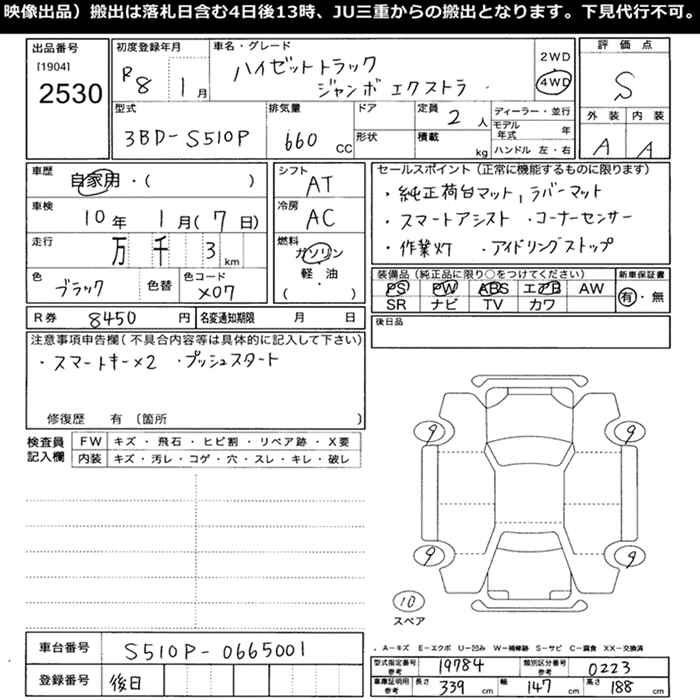 映像出品）搬出は落札日含む4日後13時、JU三重からの搬出となります。下見代行不可。
出品番号
[1904]
2530
初度登録年月
R8 1月
車名・グレード
ハイゼットトラック
ジャンボ エクストラ
2WD
4WD
評価点
S
外装 内装
A A
型式
3BD-S510P
排気量
660 CC
ドア
形状
定員 2人
積載 kg
ディーラー・並行
モデル年式 年
ハンドル 左・右
車歴
自家用・( )
車検
10年 1月(7日)
走行
万 千 3 km
色
ブラック 色替
色コード
X07
シフト
AT
冷房
AC
燃料
ガソリン
軽・油
( )
セールスポイント（正常に機能するものに限ります）
・純正荷台マット，ラバーマット
・スマートアシスト ・コーナーセンサー
・作業灯 ・アイドリングストップ
装備品（純正品に限り○をつけてください） 新車保証書
PS PW ABS エアB AW
SR ナビ TV カワ
有・無
R券 8450円 名変通知期限 月 日
後日品
注意事項申告欄（不具合内容等は具体的に記入して下さい）
・スマートキー×2 ・プッシュスタート
修復歴 有 〔箇所 〕
検査員記入欄
FW キズ・飛石・ヒビ割・リペア跡・X要
内装 キズ・汚レ・コゲ・穴・スレ・キレ・破レ
9 9
9 9
10
スペア
車台番号 S510P-0665001
登録番号 後日
A－キズ E－エクボ U－凹み W－補修跡 S－サビ C－腐食 XX－交換済
型式指定番号参考 19784 類別区分番号参考 0223
車庫証明用参考 長さ 339cm 幅 147cm 高さ 188cm